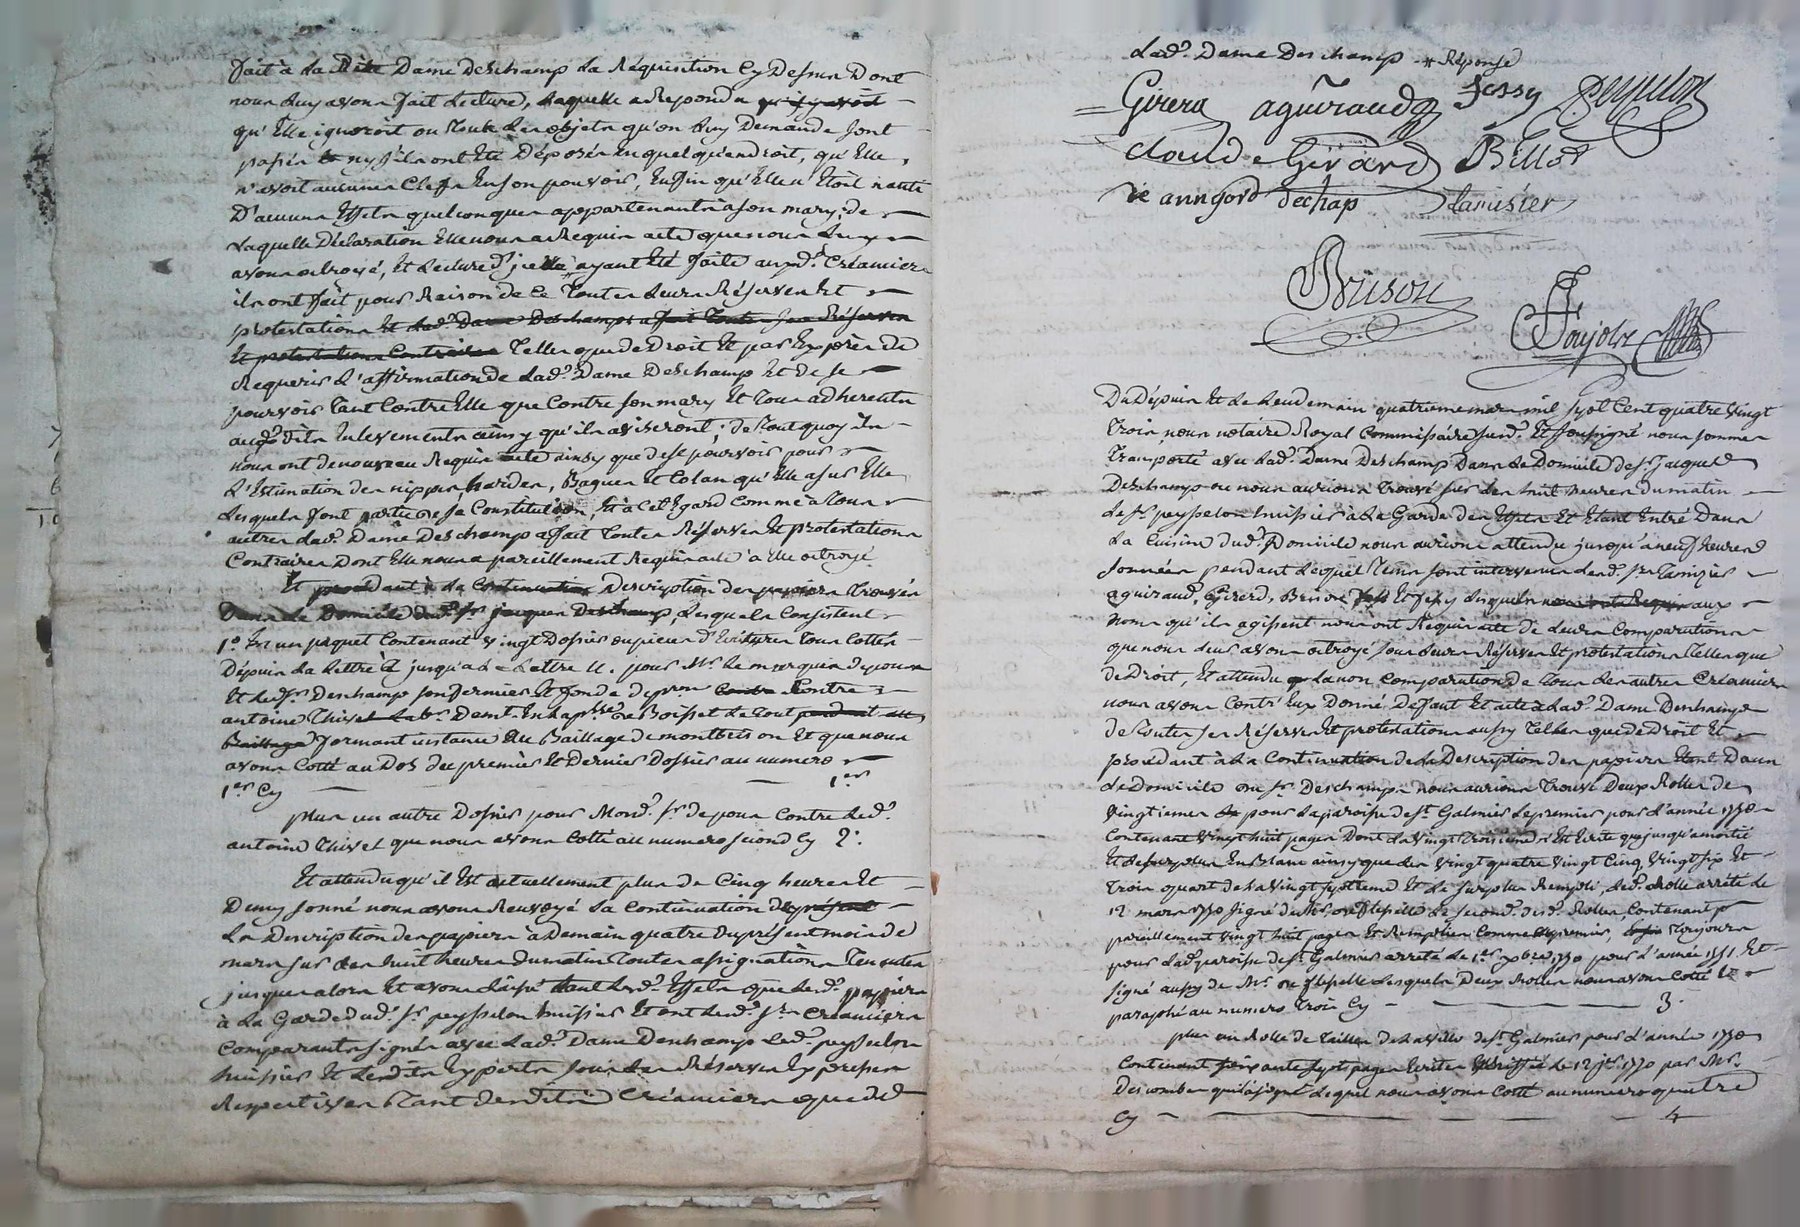 fait à la Dite Dame Deschamp la Réquisition cy Dessus Dont
nous luy avons fait lecture, laquelle a Repondu qu'il y avoit
qu'Elle ignoroit ou Tout les objets qu'on luy Demande sont
passés ny s'ils ont Eté Déposés en quelqu'endroit, qu'Elle
n'avoit aucunes Clefs En son pouvoir, Enfin qu'Elle n'Etoit nantie
D'aucuns Effets quelconques appartenants à son mary; de
laquelle Déclaration Elle nous a Requis acte que nous luy
avons octroyé, Et lecture d'icelle ayant Eté faite auxd. Créanciers
ils ont fait pour Raison de ce Toutes leurs Réserves Et
protestations Et lad. Dame Deschamps a fait Toutes ses Réserves
Et protestations Contraires Telles que de Droit Et par Exprès de
Requerir l'affirmation de lad. Dame Deschamp Et de se
pourvoir Tant Contre Elle que Contre son mary Et Tous adherents
auxd. dits Enlevements ainsy qu'ils aviseront; de Tout quoy ils
nous ont de nouveau Requis acte ainsy que de se pourvoir pour
l'Estimation des nippes, hardes, Bagues Et Colan qu'Elle a sur Elle
lesquels font partie de sa Constitution, Et à cet Egard Comme à Tous
autres lad. Dame Deschamp a fait Toutes Réserves Et protestations
Contraires Dont Elle nous a pareillement Requis acte à Elle octroyé
Et procédant à la Continuation Description des papiers Trouvés
Dans le Domicile dud. Sr. jacques Deschamp, lesquels Consistent
1° En un paquet Contenant vingt Dossiers ou pieces d'Ecritures Tous Cottés
Dépuis la lettre A jusqu'à la Lettre U. pour Mr. le marquis de pons
Et led. Sr. Deschamp son fermier Et fondé de pron Contre Contre
antoine Thivel Labr. Demt. En la psse de Boisset le Tout pendant au
Baillage formant instance au Baillage de montbrison Et que nous
avons Cotté au Dos des premier Et Dernier Dossier au numero
1er Cy — 1er
plus un autre Dossier pour Mond. Sr. de pons Contre led.
antoine Thivel que nous avons Cotté au numero second Cy 2:
Et attendu qu'il Est actuellement plus de Cinq heures Et
Demy sonné nous avons Renvoyé la Continuation de présent
la Description des papiers à Demain quatre Du présent mois de
mars sur les huit heures du matin Toutes assignations Tenantes
jusques alors Et avons laissé Tant lesd. Effets que lesd. papiers
à la Garde dud. Sr. peysselon huissier Et ont lesd. Srs. Créanciers
Comparants signés avec lad. Dame Deschamp led. peysselon
huissier Et lesdits Experts sous les Réserves Expresses
Respectives Tant desdits Créanciers que de
lad. Dame Deschamp * Réponse
Girerd aguiraud Jessy Peysselon
Claude Girard Billot
jeanngord dechap Lamisier
Brison
Poujols
Du Dépuis Et le lendemain quatrieme mars mil sept Cent quatre vingt
Trois, nous notaire Royal Commissaire susd. Et soussigné nous sommes
Transporté avec lad. Dame Deschamp Dans le Domicile de Sr. Jacques
Deschamps ou nous aurions Trouvé sur les huit heures du matin
le Sr. peysselon huissier à la Garde des Effets Et Etant Entré Dans
la Cuisine dud. Domicile nous aurions attendu jusqu'a neuf heures
sonnées pendant lequel Tems sont intervenus lesd. Srs. Tamizier
aguiraud, Girerd, Brison Et Jessy lesquels nous ont Requis aux
noms qu'ils agissent nous ont Requis acte de leurs Comparutions
que nous leur avons octroyé sous leurs Réserves Et protestations Telles que
de Droit, Et attendu la non Comparution de Tous les autres Créanciers
nous avons Contr'Eux Donné Défaut Et acte à lad. Dame Deschamps
de Toutes ses Réserves Et protestations aussy Telles que de Droit Et
procédant à la Continuation de la Description des papiers Etant Dans
le Domicile du Sr. Deschamps nous aurions Trouvé Deux Rolles de
vingtiemes pour la paroisse de St. Galmier le premier pour l'année 1750
Contenant vingt huit pages Dont la vingt Troisieme n'Est Ecrite que jusqu'a moitié
Et le surplus En Blanc ainsy que les vingt quatre vingt Cinq, vingt six Et
Trois quart de la vingt septieme Et le surplus Rempli, led. Rolle arrêté le
12 mars 1750 signé le second. desd. Rolles Contenant
pareillement vingt huit pages Et Remplies Comme le premier, Toujours
pour lad. paroisse de St. Galmier arrêté le 1er xbre 1750 pour l'année 1751 Et
signé aussy de Mr. lesquels Deux Rolles nous avons Cotté Et
paraphé au numero Trois Cy — 3.
plus un Rolle de Tailles de la ville de St. Galmier pour l'année 1750
Contenant soixante sept pages Ecrites Vérifié le 12 1770 par Mr.
Descombes lequel nous avons Cotté au numero quatre
Cy — 4